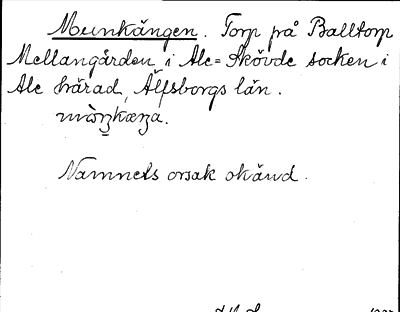 Munkängen. Torp på Balltorp
Mellangården i Ale-Skövde socken i
Ale härad, Älfsborgs län.
Namnets orsak okänd.